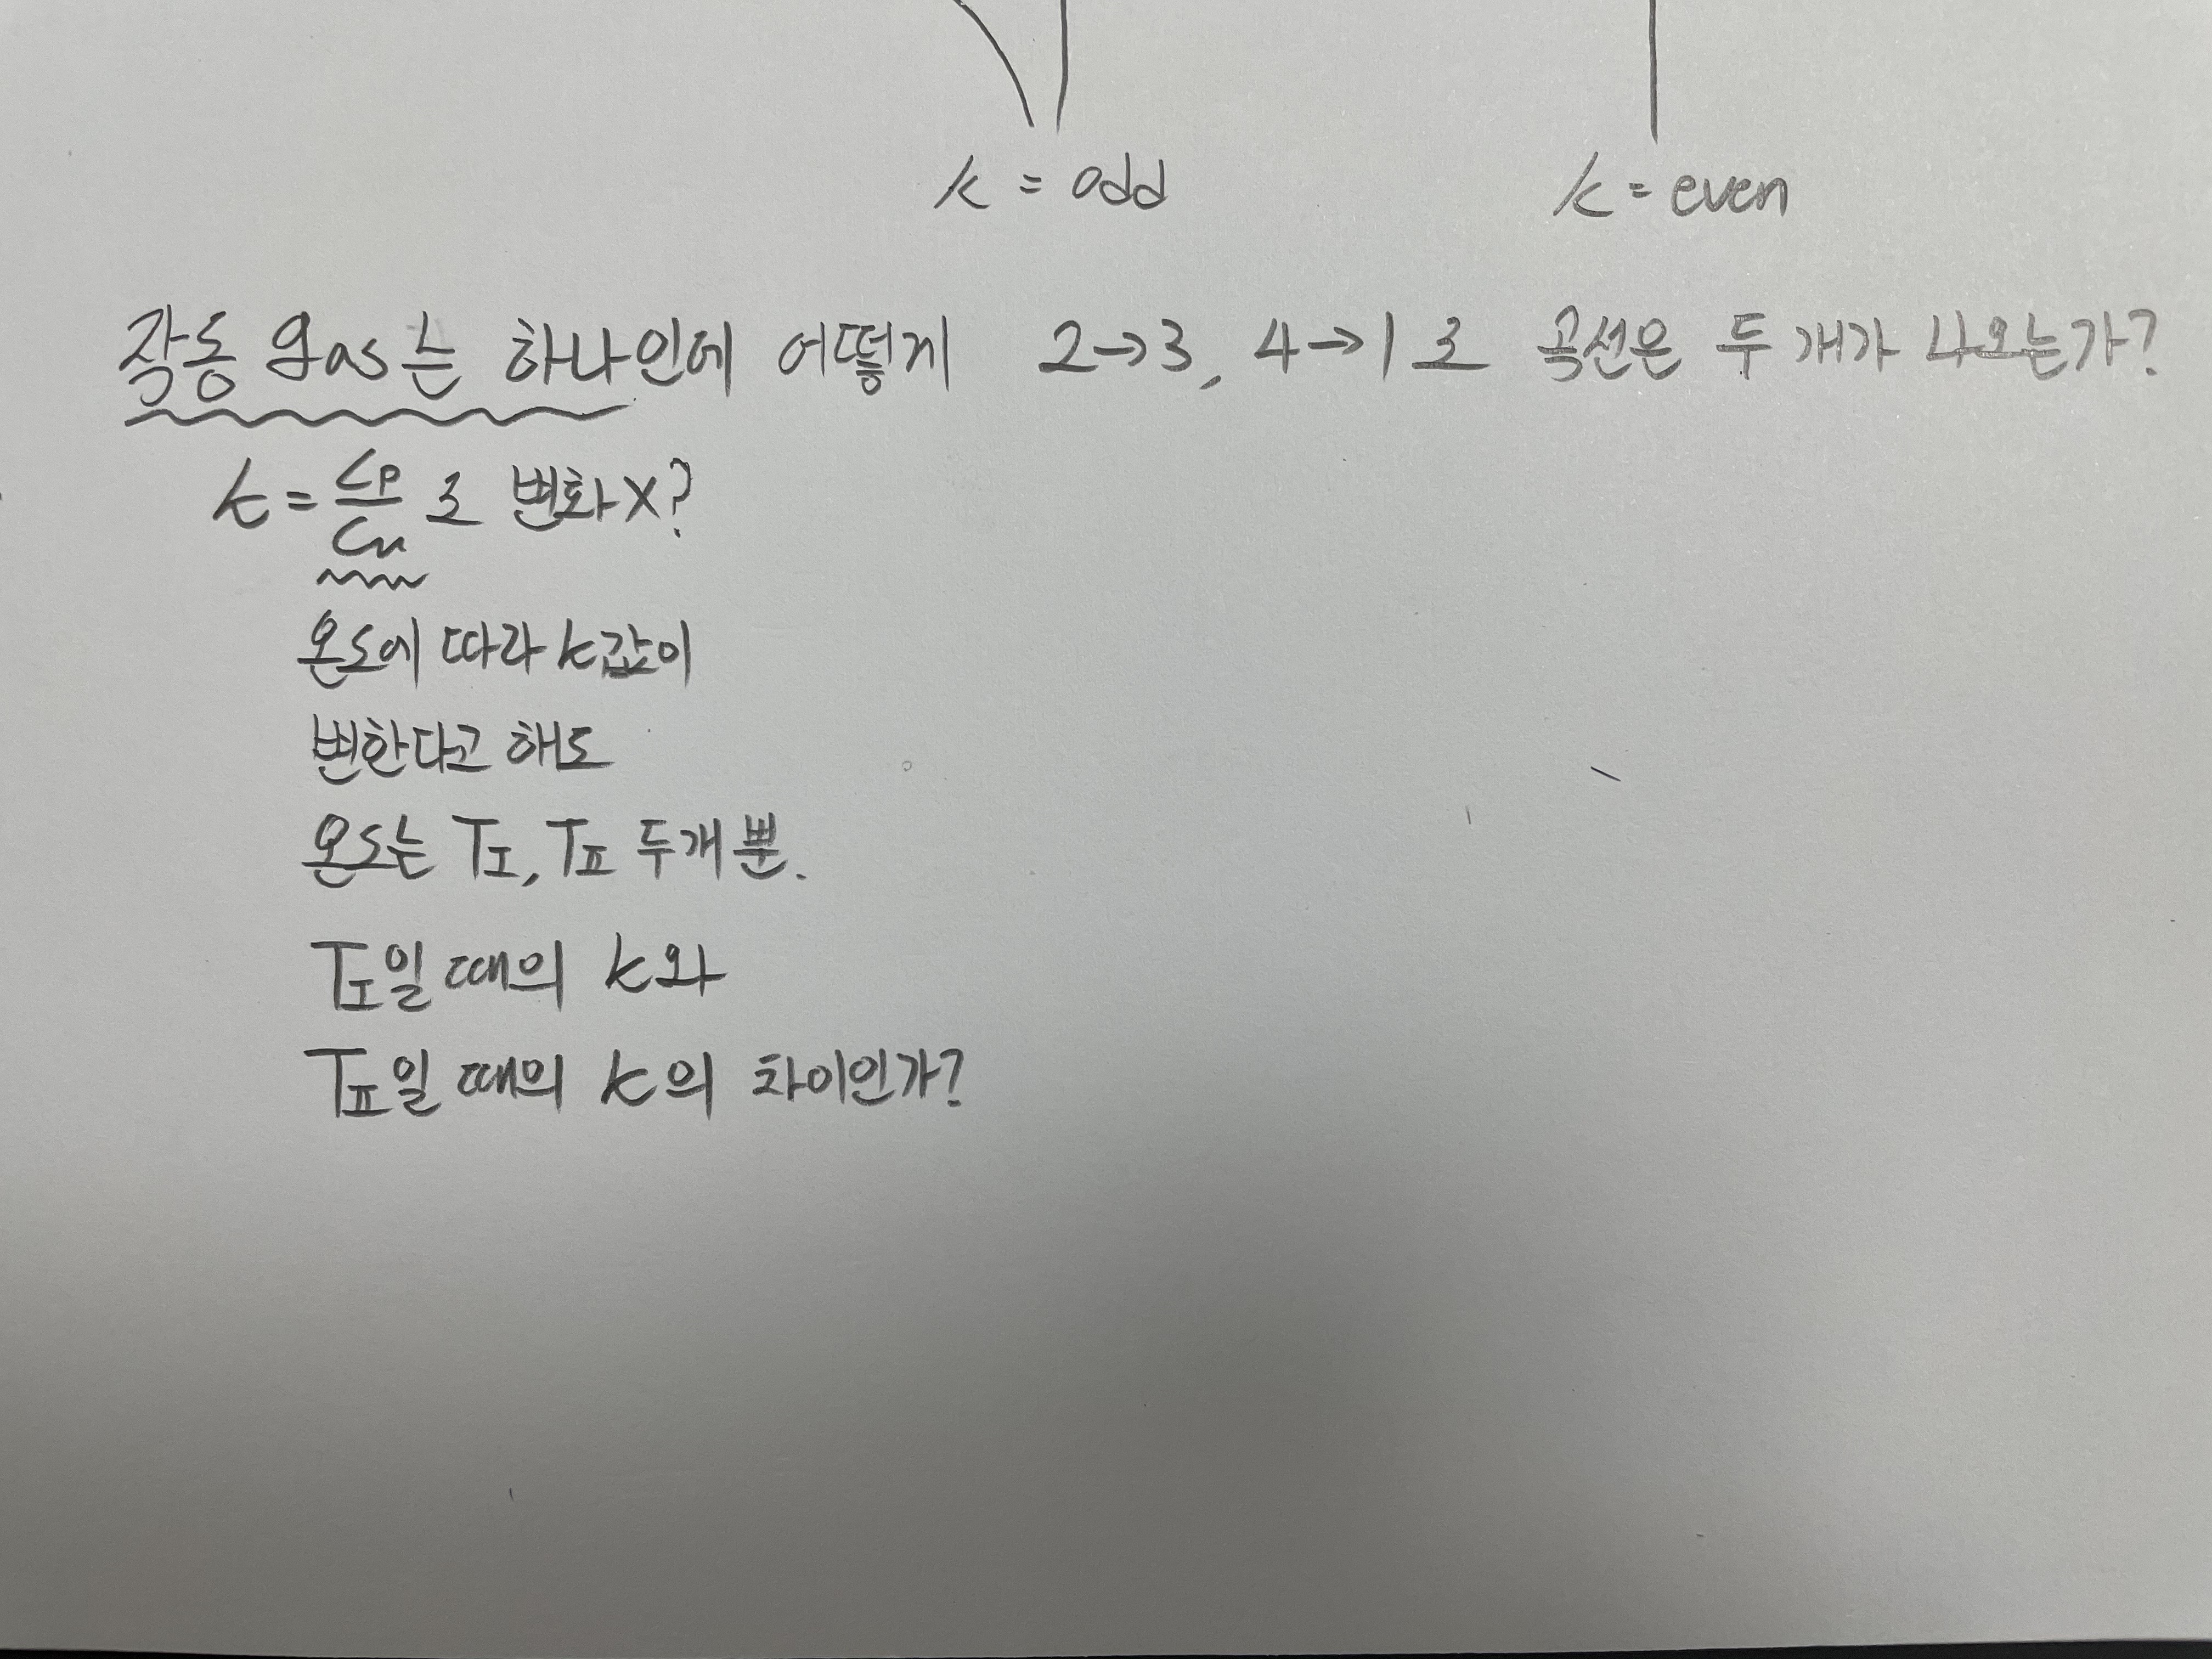 k = odd
k = even
작동 gas는 하나인데 어떻게 2→3, 4→1로 곡선은 두 개가 나오는가?
k = Cp/Cv로 변화X?
온도에 따라 k값이
변한다고 해도
온도는 TⅠ, TⅡ 두개 뿐.
TⅠ일 때의 k와
TⅡ일 때의 k의 차이인가?